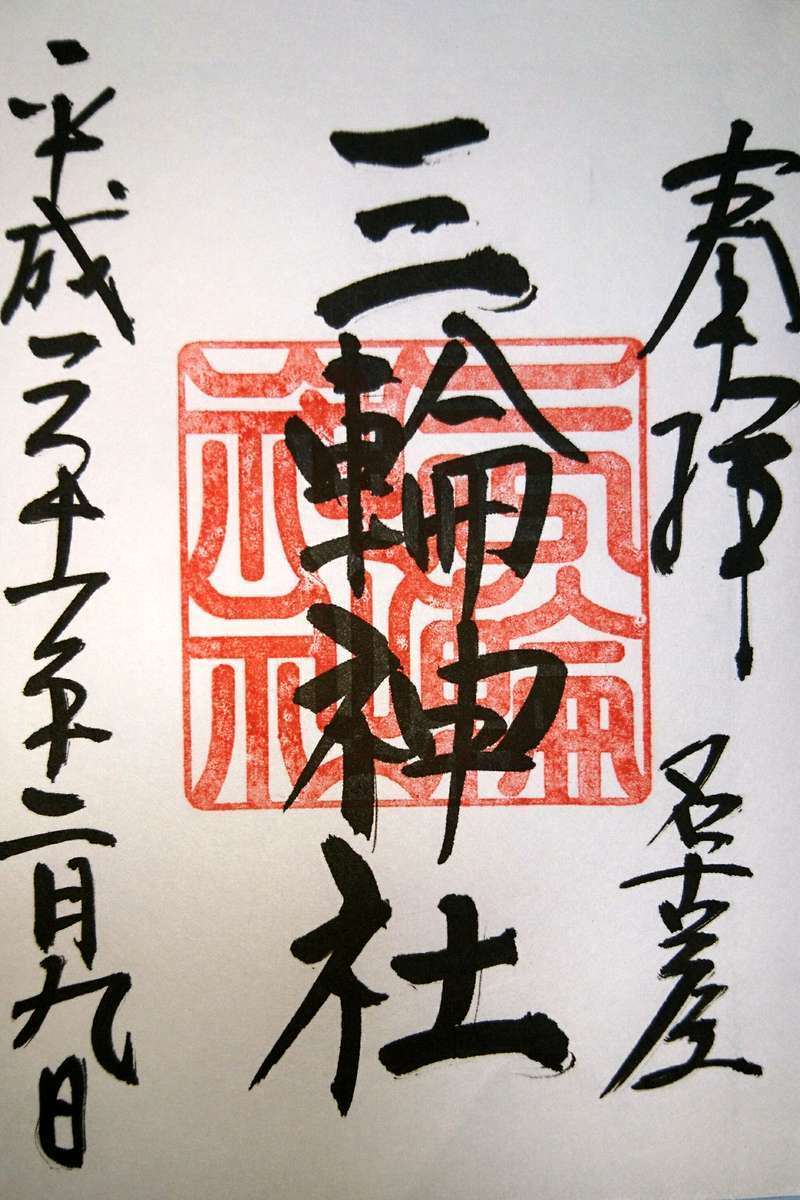 奉拝 名古屋
三輪神社
三輪神社
平成三十一年二月九日